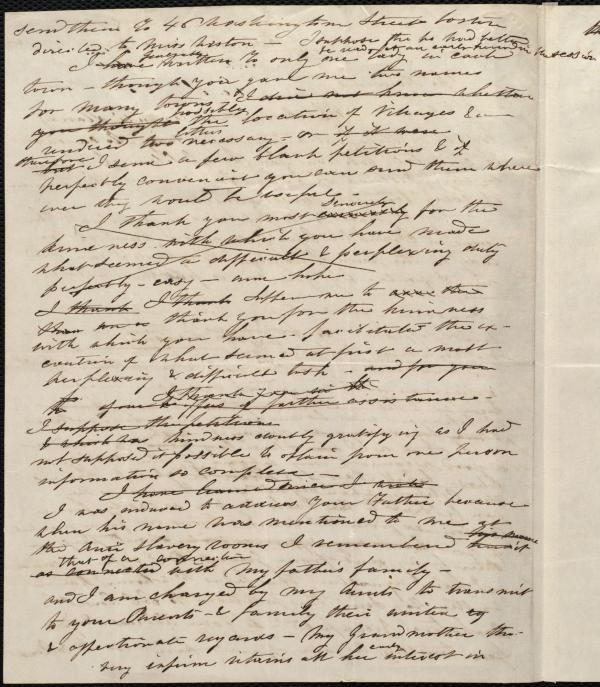 send them to 46 Washington Street Boston
directed to Miss Weston — I suppose
I have written to only one lady in each
town — though you gave me two names
for many towns, I did not know whether
you thought the location of villages &c
rendered two necessary — or if it were
therefore
but I send a few blank petitions & if
perfectly convenient you can send them where
ever they would be useful —
sincerely
I thank you most for the
kindness with which you have made
what seemed a difficult & perplexing duty
perfectly easy —
I thank I thank Suffer me to
thank you for the kindness
with which you have facilitated the ex-
ecution of what seemed at first a most
perplexing & difficult task — and for your
I thank you
your offers of further assistance —
I suppose the petitions
kindness doubly gratifying as I had
not supposed it possible to obtain from one person
information so complete
I have learned since I
I was induced to address your Father because
when his name was mentioned to me at
the Anti Slavery rooms I remembered
that of a connexion
as connected with my father's family —
and I am charged by my Aunts to transmit
to your Parents & family their united
& affectionate regards — My Grandmother tho'
early
very infirm retains all her interest in